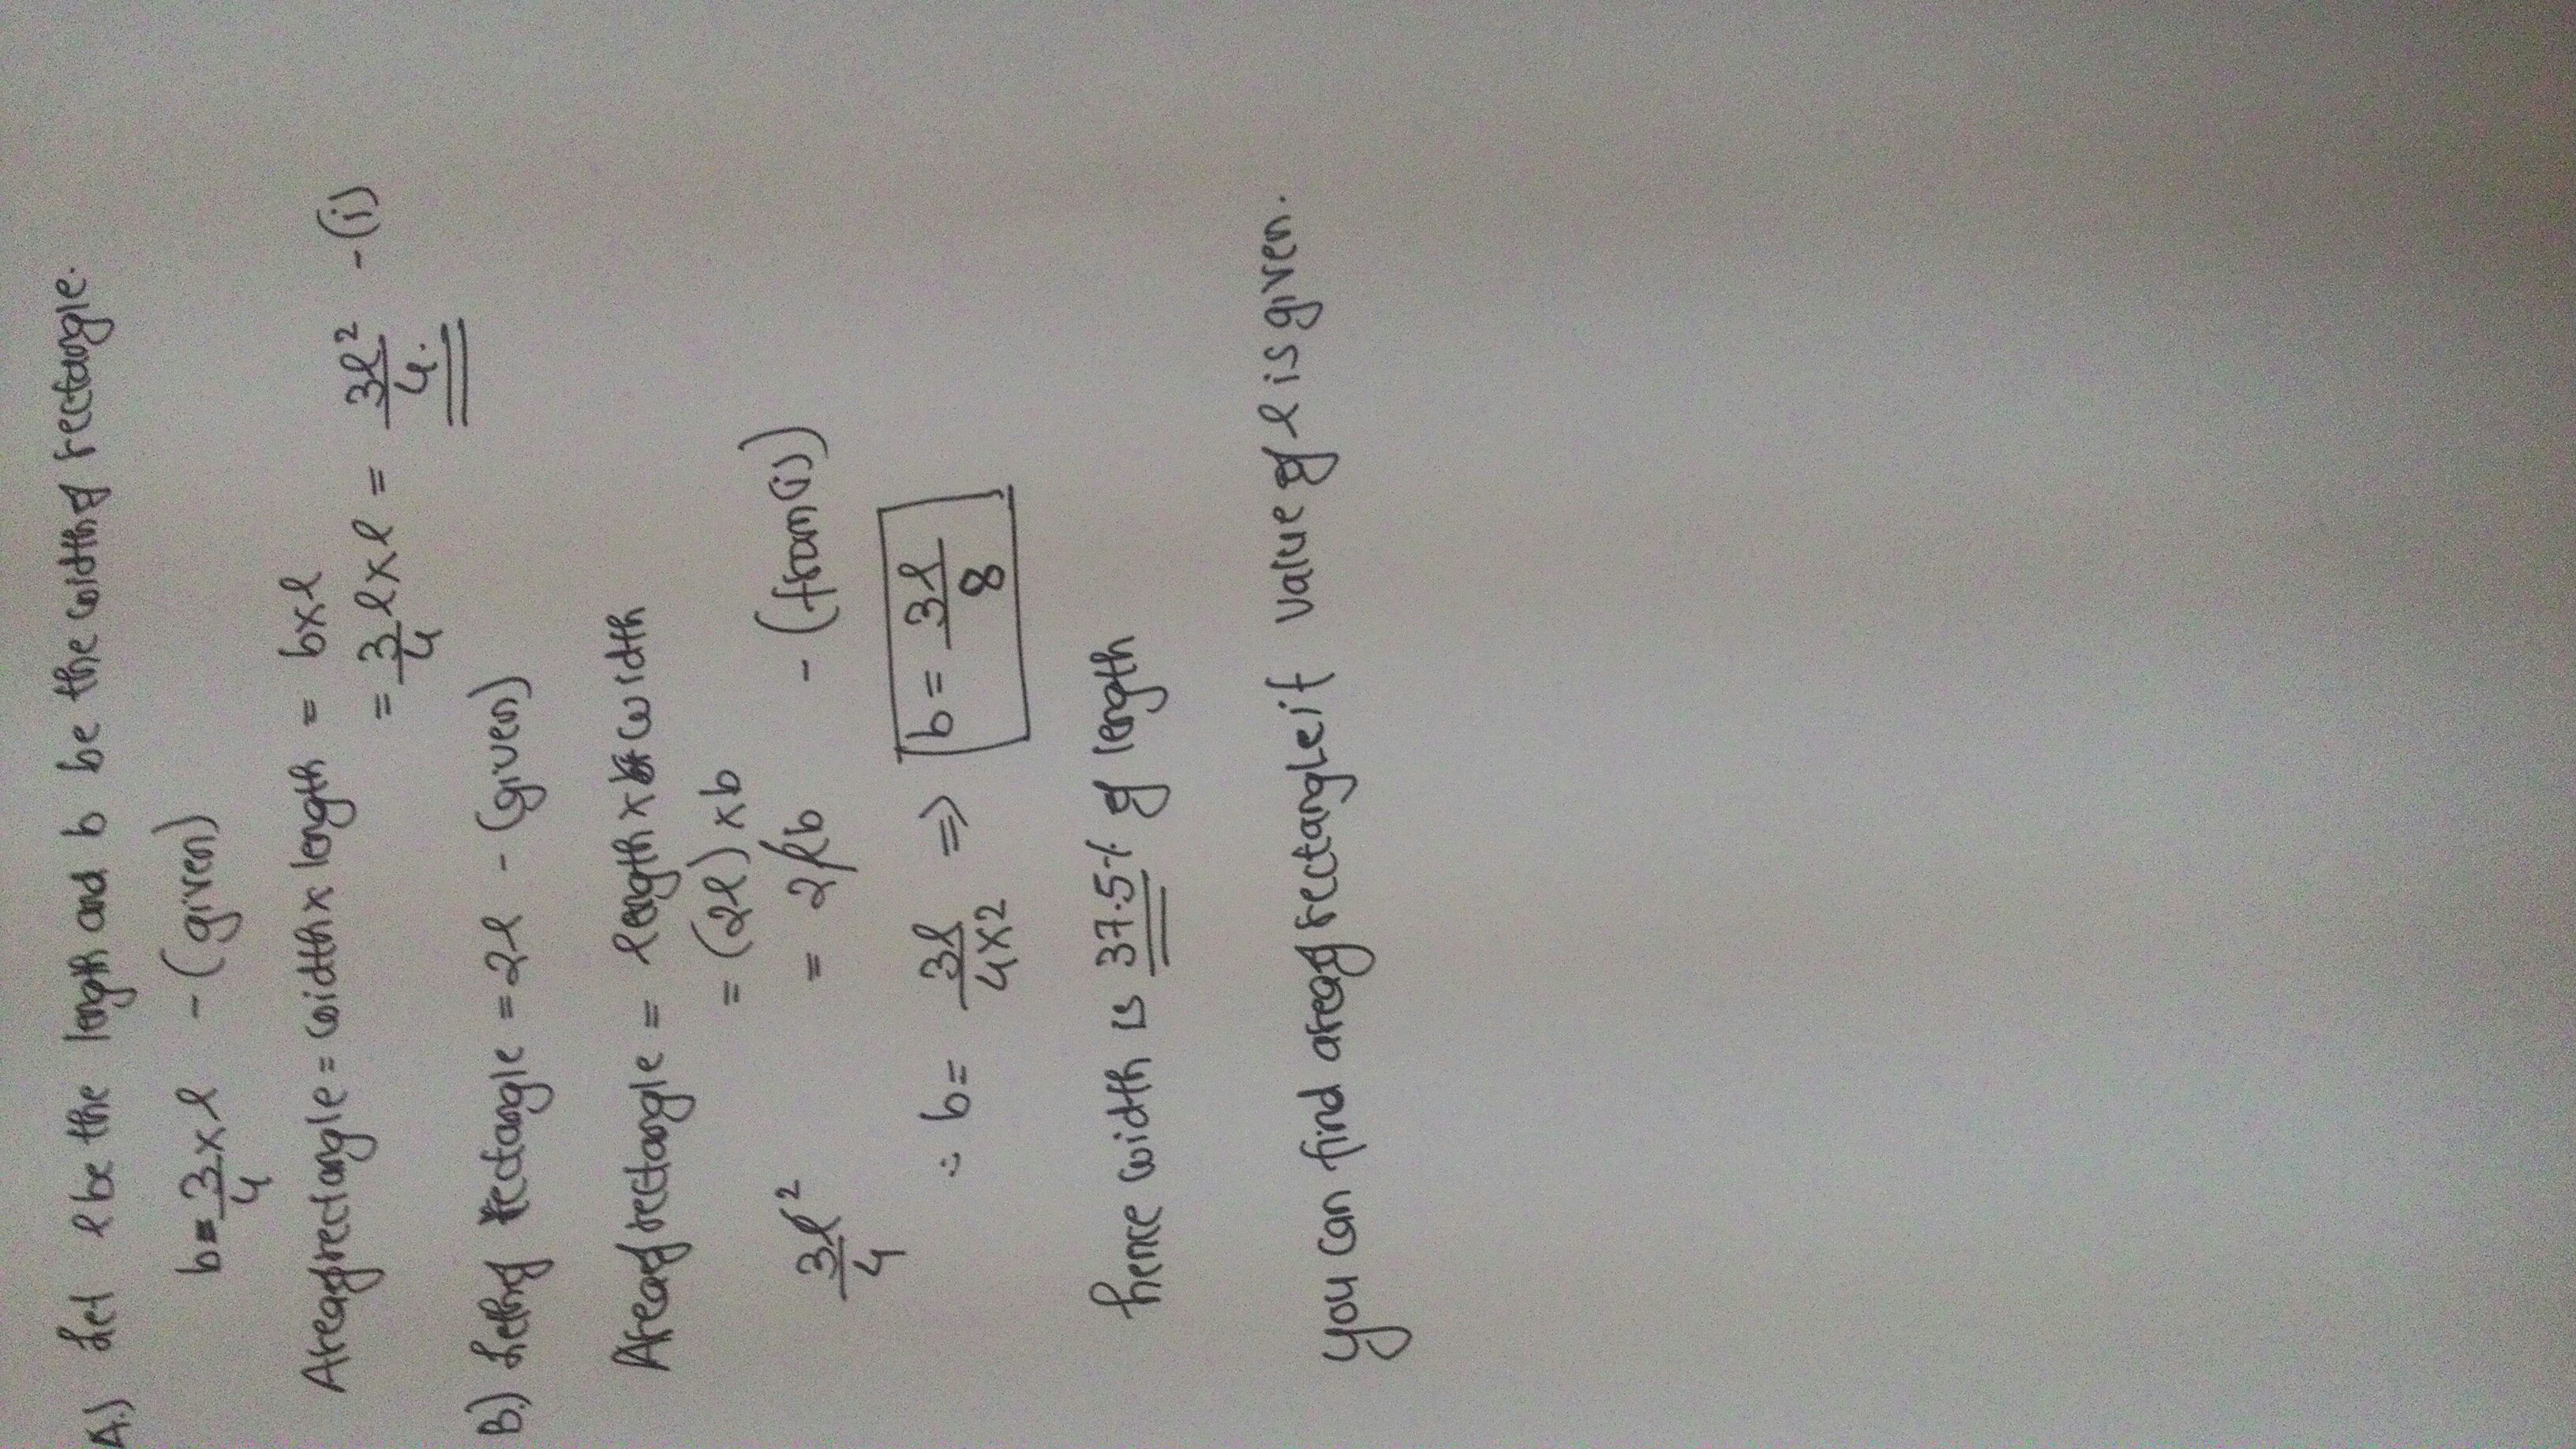 A.) Let l be the length and b be the width of rectangle.
b = 3/4 x l - (given)
Area of rectangle = width x length = b x l
= 3/4 l x l = 3l²/4. - (i)
B.) Length of rectangle = 2l - (given)
Area of rectangle = length x width
= (2l) x b
3l²/4 = 2lb - (from (i))
∴ b = 3l/4x2 ⇒ b = 3l/8
hence width is 37.5% of length
you can find area of rectangle if value of l is given.